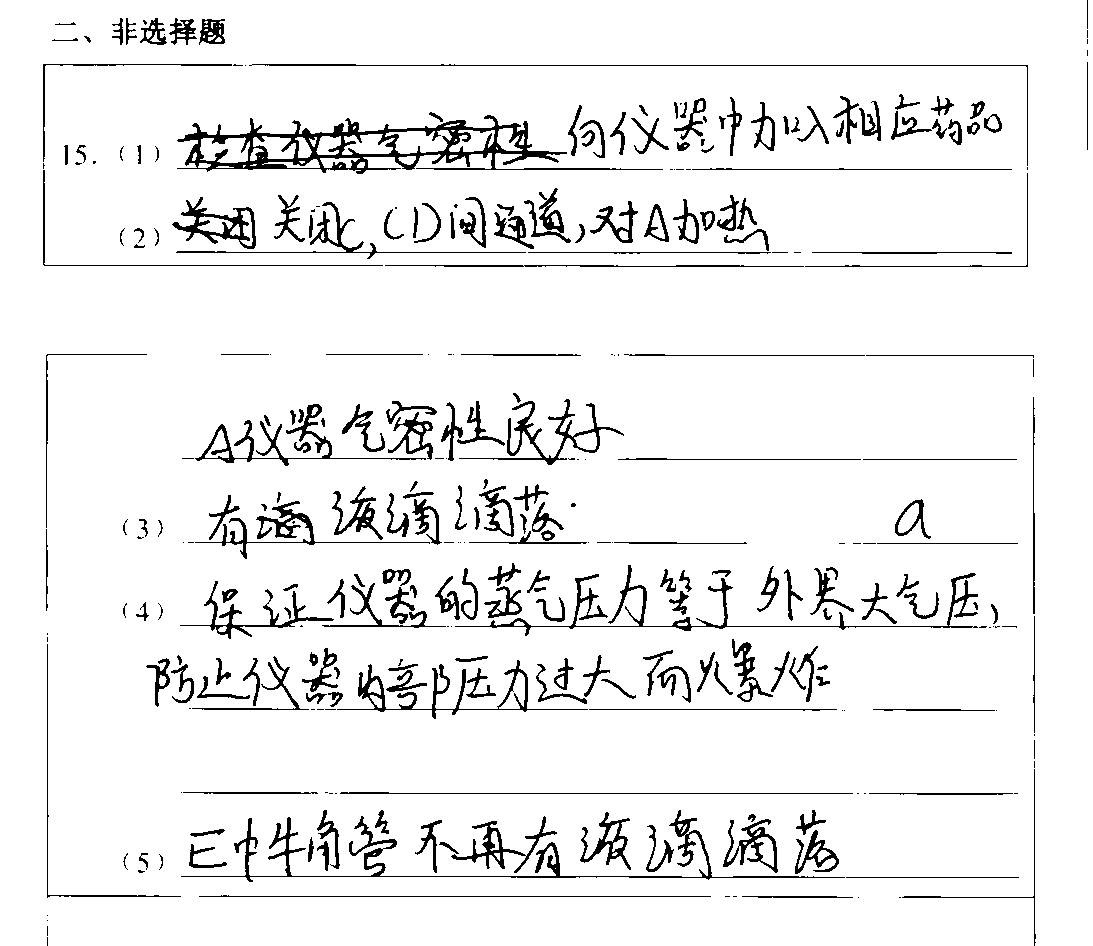 二、非选择题
15.（1）向仪器中加入相应药品
（2）关闭C,(1)间通道,对A加热
A仪器气密性良好
（3）有液滴滴落. a
（4）保证仪器的蒸气压力等于外界大气压,
防止仪器内部压力过大而爆炸
（5）E中牛角管不再有液滴滴落